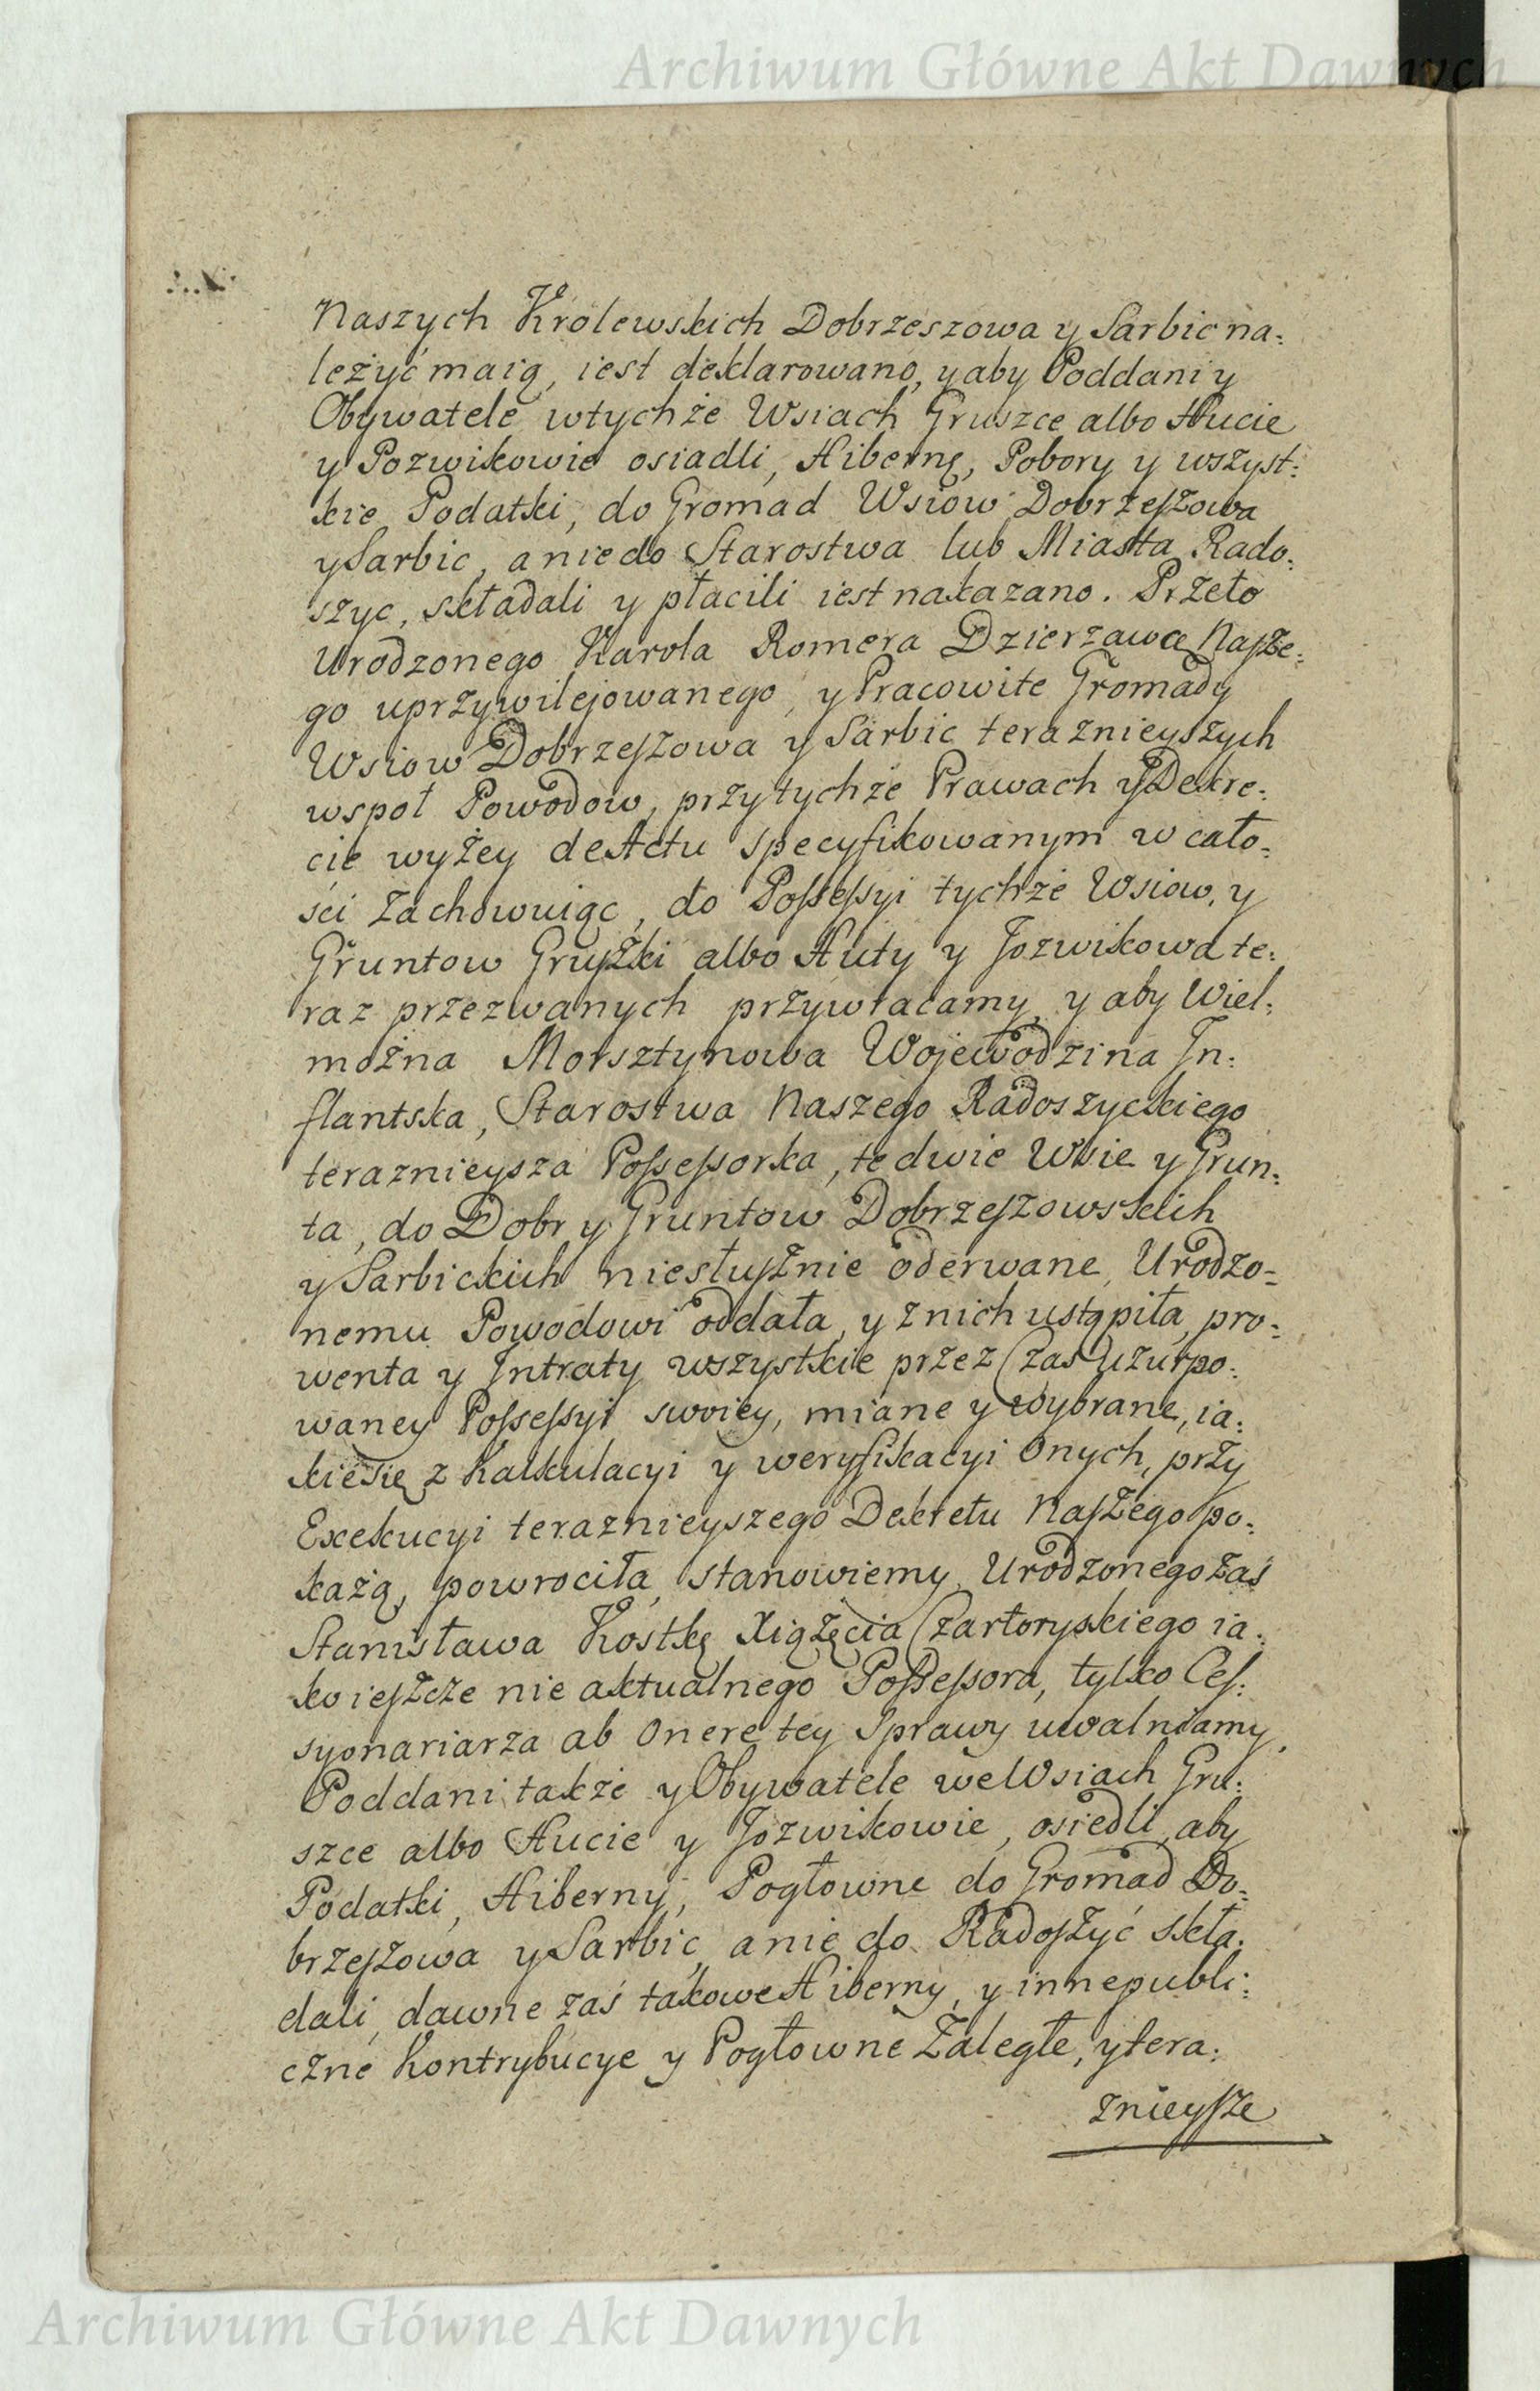 Archiwum Główne Akt Dawnych
Naszych Krolewskich Dobrzeszowa y Sarbic na:
leżyć maią, iest deklarowano, y aby Poddani y
Obywatele wtychże Wsiach Gruszce albo Hucie
y Pozwikowie osiadli, Hibernę, Pobory y wszyst:
kie Podatki, do Gromad Wsiow Dobrzeszowa
y Sarbic, a nie do Starostwa lub Miasta Rado:
szyc, składali y płacili iest nakazano. Przeto
Urodzonego Karola Romera Dzierzawcę Nasze:
go uprzywilejowanego, y Pracowite Gromady
Wsiow Dobrzeszowa y Sarbic teraznieyszych
wspoł Powodow, przytychże Prawach y Dekre:
cie wyżey de Actu specyfikowanym w cało:
ści zachowuiąc, do Possessyi tychże Wsiow, y
Gruntow Gruszki albo Huty y Jozwikowa te:
raz przezwanych przywracamy, y aby Wiel:
można Morsztynowa Wojewodzina In:
flantska, Starostwa Naszego Radoszyckiego
teraznieysza Possessorka, te dwie Wsie y Grun:
ta, do Dobr y Gruntow Dobrzeszowskich
y Sarbickich niesłusznie oderwane, Urodzo:
nemu Powodowi oddała, y z nich ustąpiła, pro:
wenta y Intraty wszystkie przez Czas Uzurpo:
waney Possessyi swoiey, miane y wybrane, ia:
kie się z Kalkulacyi y weryfikacyi Onych, przy
Exekucyi teraznieyszego Dekretu Naszego po:
każą, powrociła, stanowiemy, Urodzonego zaś
Stanisława Kostkę Xiążęcia Czartoryskiego ia:
ko ieszcze nie aktualnego Possessora, tylko Ces:
syonariarza ab Onere tey Sprawy uwalniamy,
Poddani także y Obywatele we Wsiach Gru:
szce albo Hucie y Jozwikowie, osiedli, aby
Podatki, Hiberny, Pogłowne do Gromad Do:
brzeszowa y Sarbic, a nie do Radoszyć skła:
dali, dawne zaś takowe Hiberny, y inne publi:
czne Kontrybucye y Pogłowne Zaległe, y tera:
znieysze
Archiwum Główne Akt Dawnych